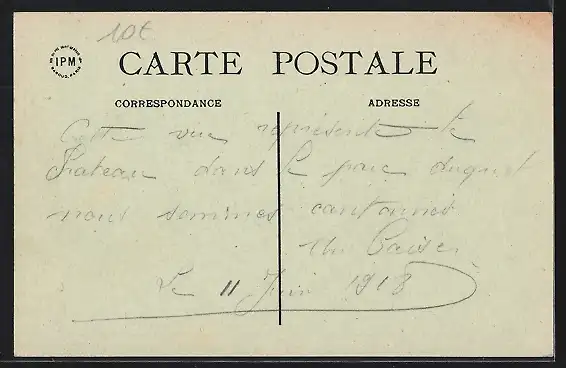 10€
IPM
CARTE POSTALE
CORRESPONDANCE
ADRESSE
Cette vue représente le
Chateau dans le parc duquel
nous sommes cantonnés
Le 11 Juin 1918